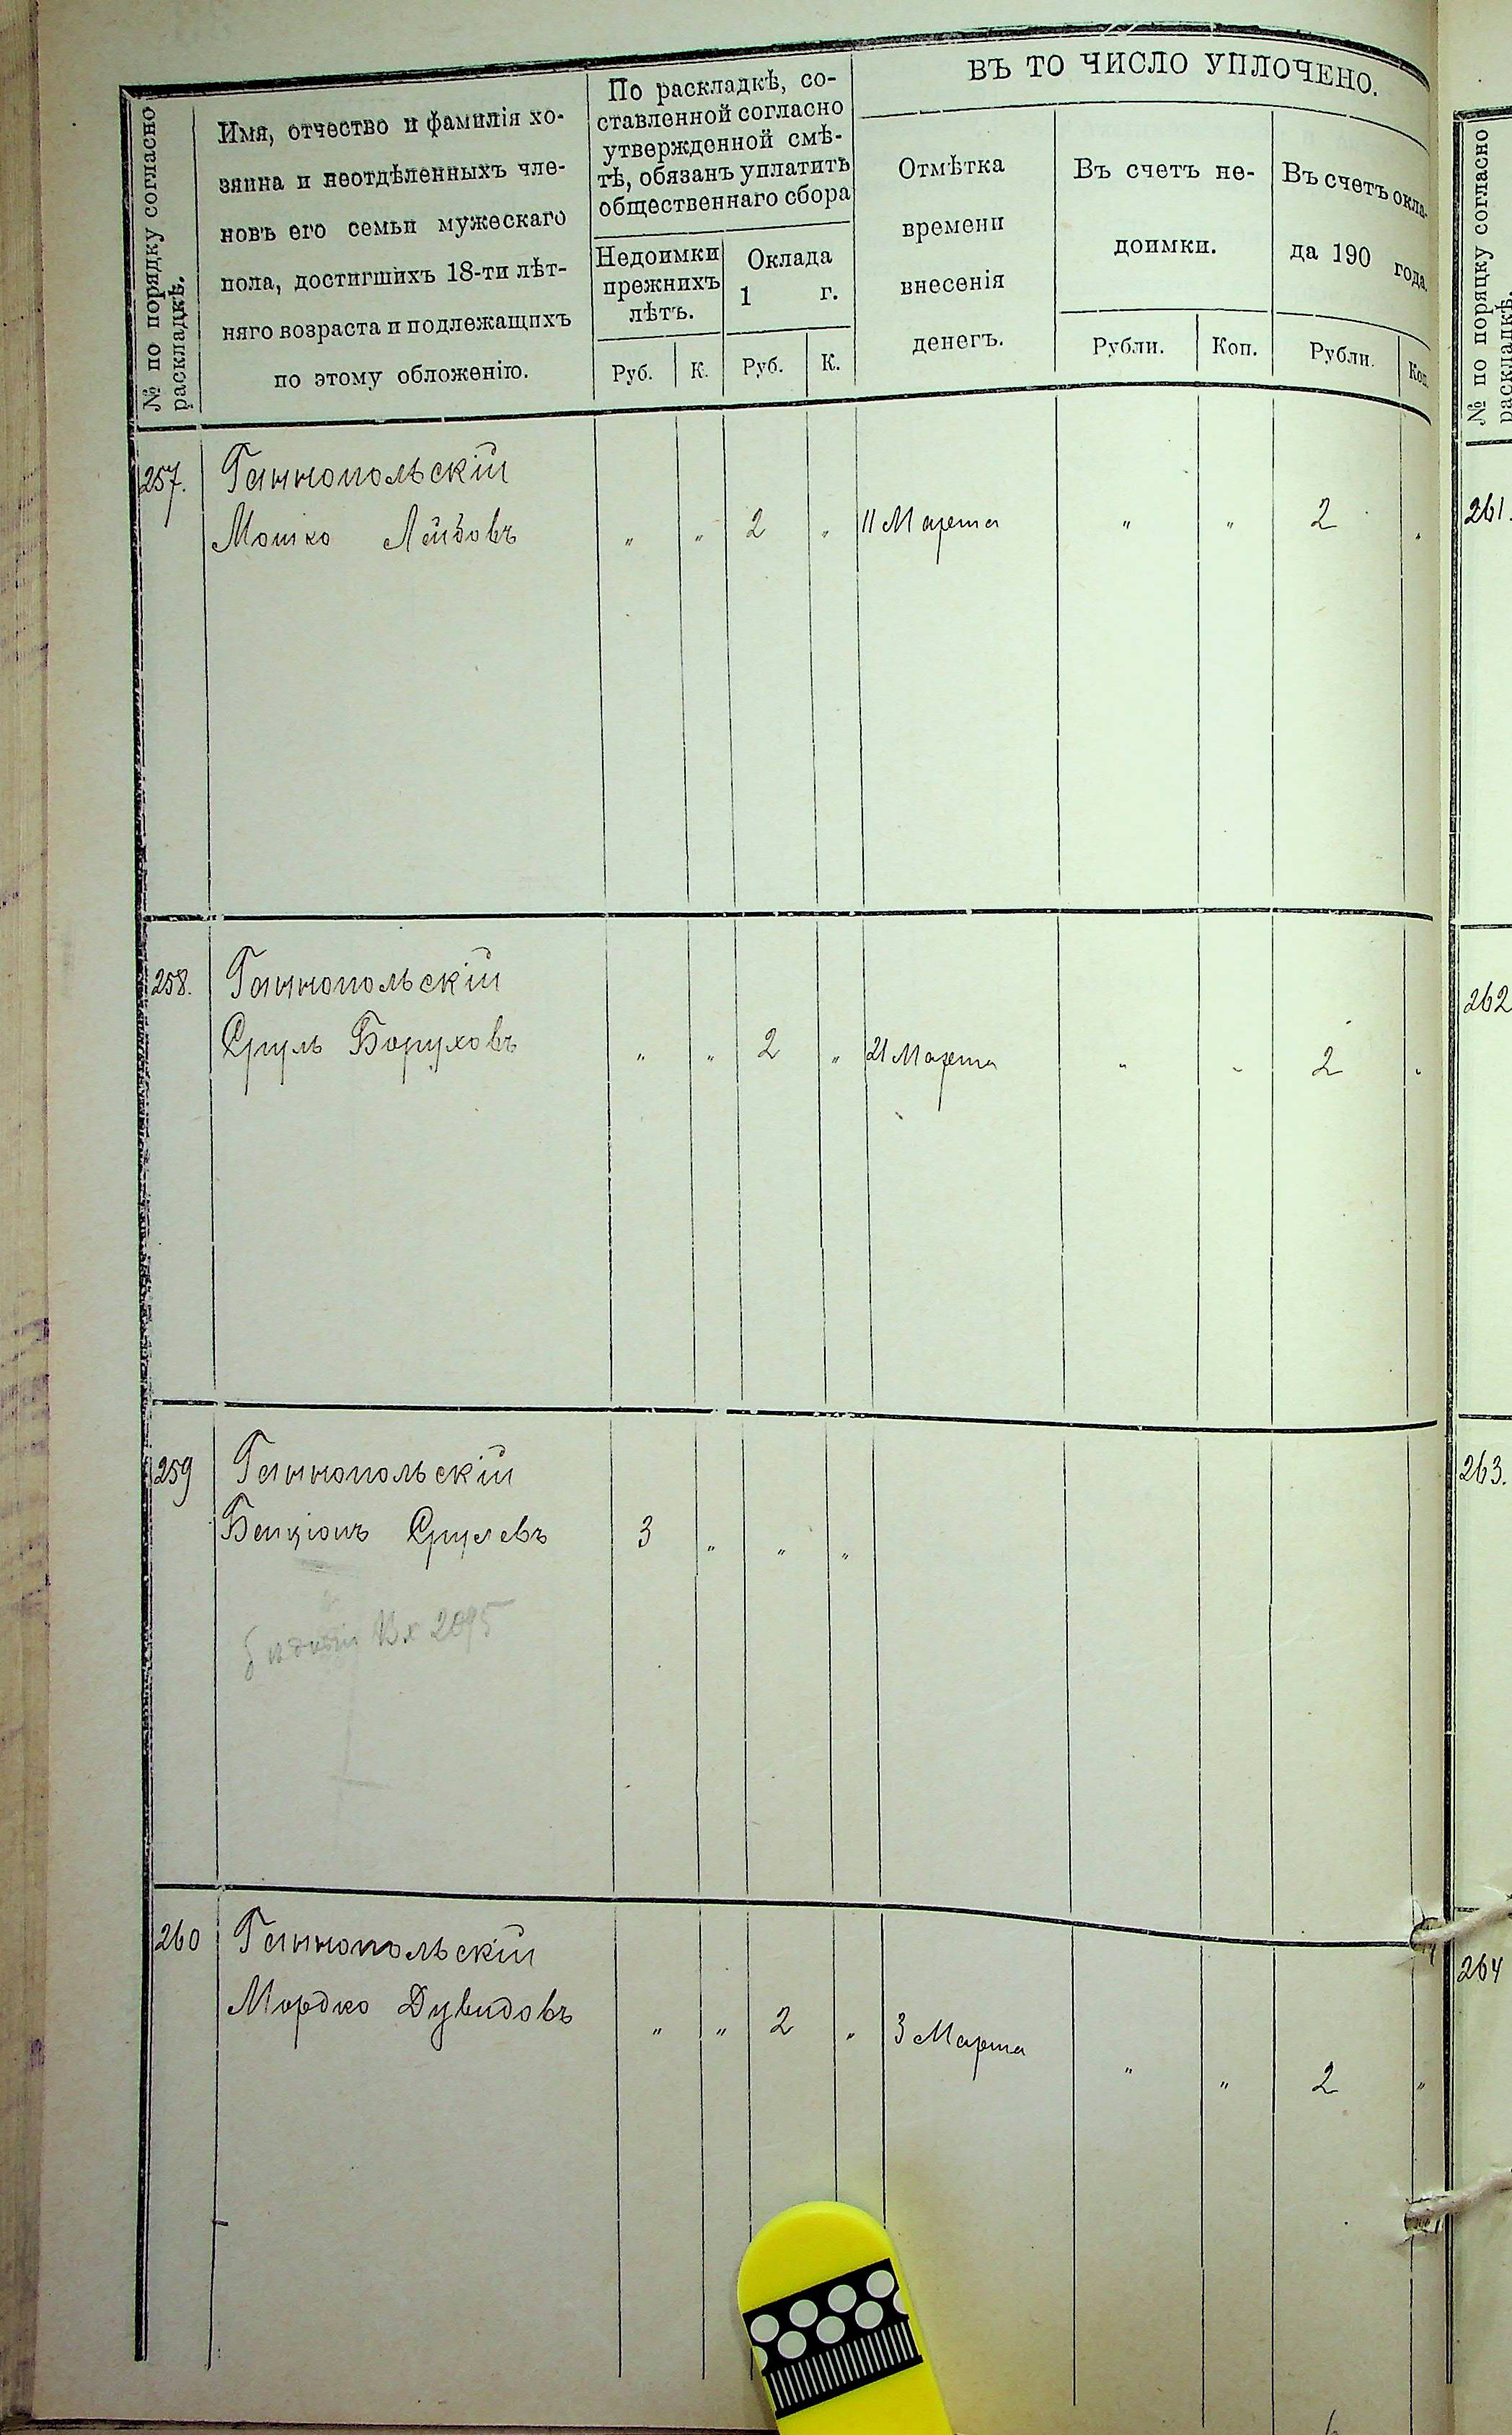 № по порядку согласно раскладкѣ.
Имя, отчество и фамилія хо-
зяина и неотдѣленныхъ чле-
новъ его семьи мужескаго
пола, достигшихъ 18-ти лѣт-
няго возраста и подлежащихъ
по этому обложенію.
По раскладкѣ, со-
ставленной согласно
утвержденной смѣ-
тѣ, обязанъ уплатить
общественнаго сбора
Недоимки прежнихъ лѣтъ.
Оклада 1 г.
Руб. К. Руб. К.
ВЪ ТО ЧИСЛО УПЛОЧЕНО.
Отмѣтка
времени
внесенія
денегъ.
Въ счетъ не-
доимки.
Рубли. Коп.
Въ счетъ окла-
да 190 года.
Рубли. Коп.
257. Ганнопольскій
Мошко Лейбовъ " " 2 " 11 Марта " " 2 "
258. Ганнопольскій
Сруль Боруховъ " " 2 " 21 Марта " " 2 "
259 Ганнопольскій
Бенціонъ Срулевъ 3 " " "
бѣдный Вх 2095
260 Ганнопольскій
Мордко Дувидовъ " " 2 " 3 Марта " " 2 "
№ по порядку согласно раскладкѣ.
261.
262
263.
264